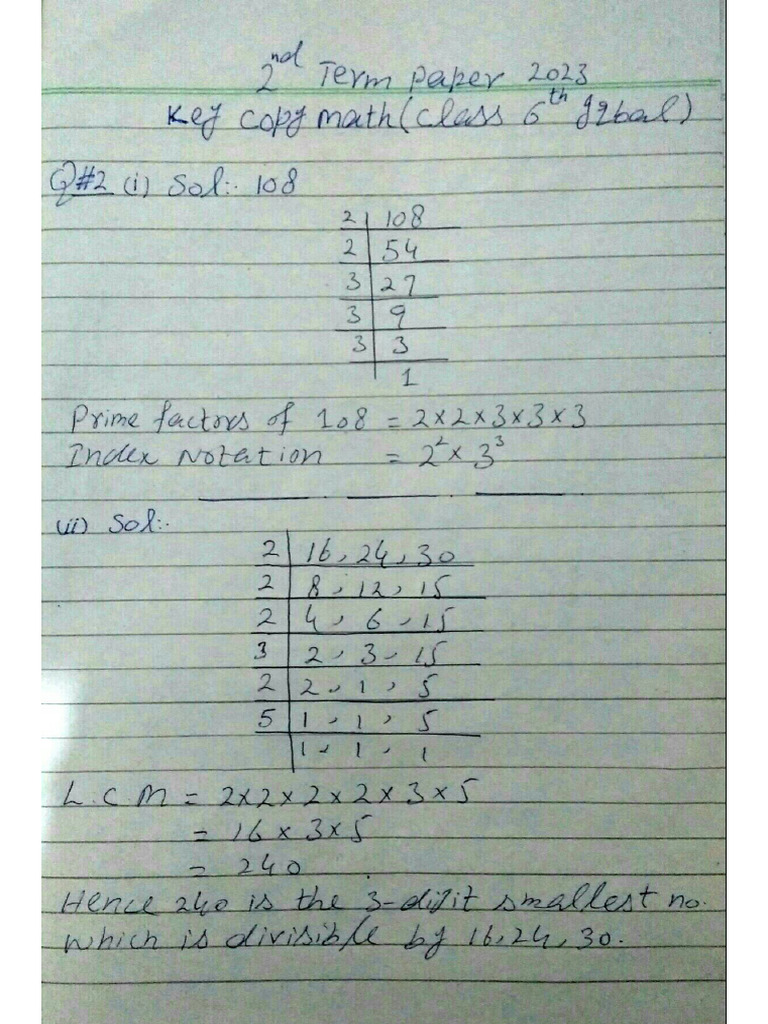 2nd Term Paper 2023
Key Copy math (Class 6th Iqbal)
Q#2 (i) Sol:- 108
2 | 108
2 | 54
3 | 27
3 | 9
3 | 3
1
Prime factors of 108 = 2×2×3×3×3
Index Notation = 2² × 3³
(ii) Sol:-
2 | 16, 24, 30
2 | 8, 12, 15
2 | 4, 6, 15
3 | 2, 3, 15
2 | 2, 1, 5
5 | 1, 1, 5
1, 1, 1
L.C.M = 2×2×2×2×3×5
= 16×3×5
= 240
Hence 240 is the 3-digit smallest no.
which is divisible by 16, 24, 30.